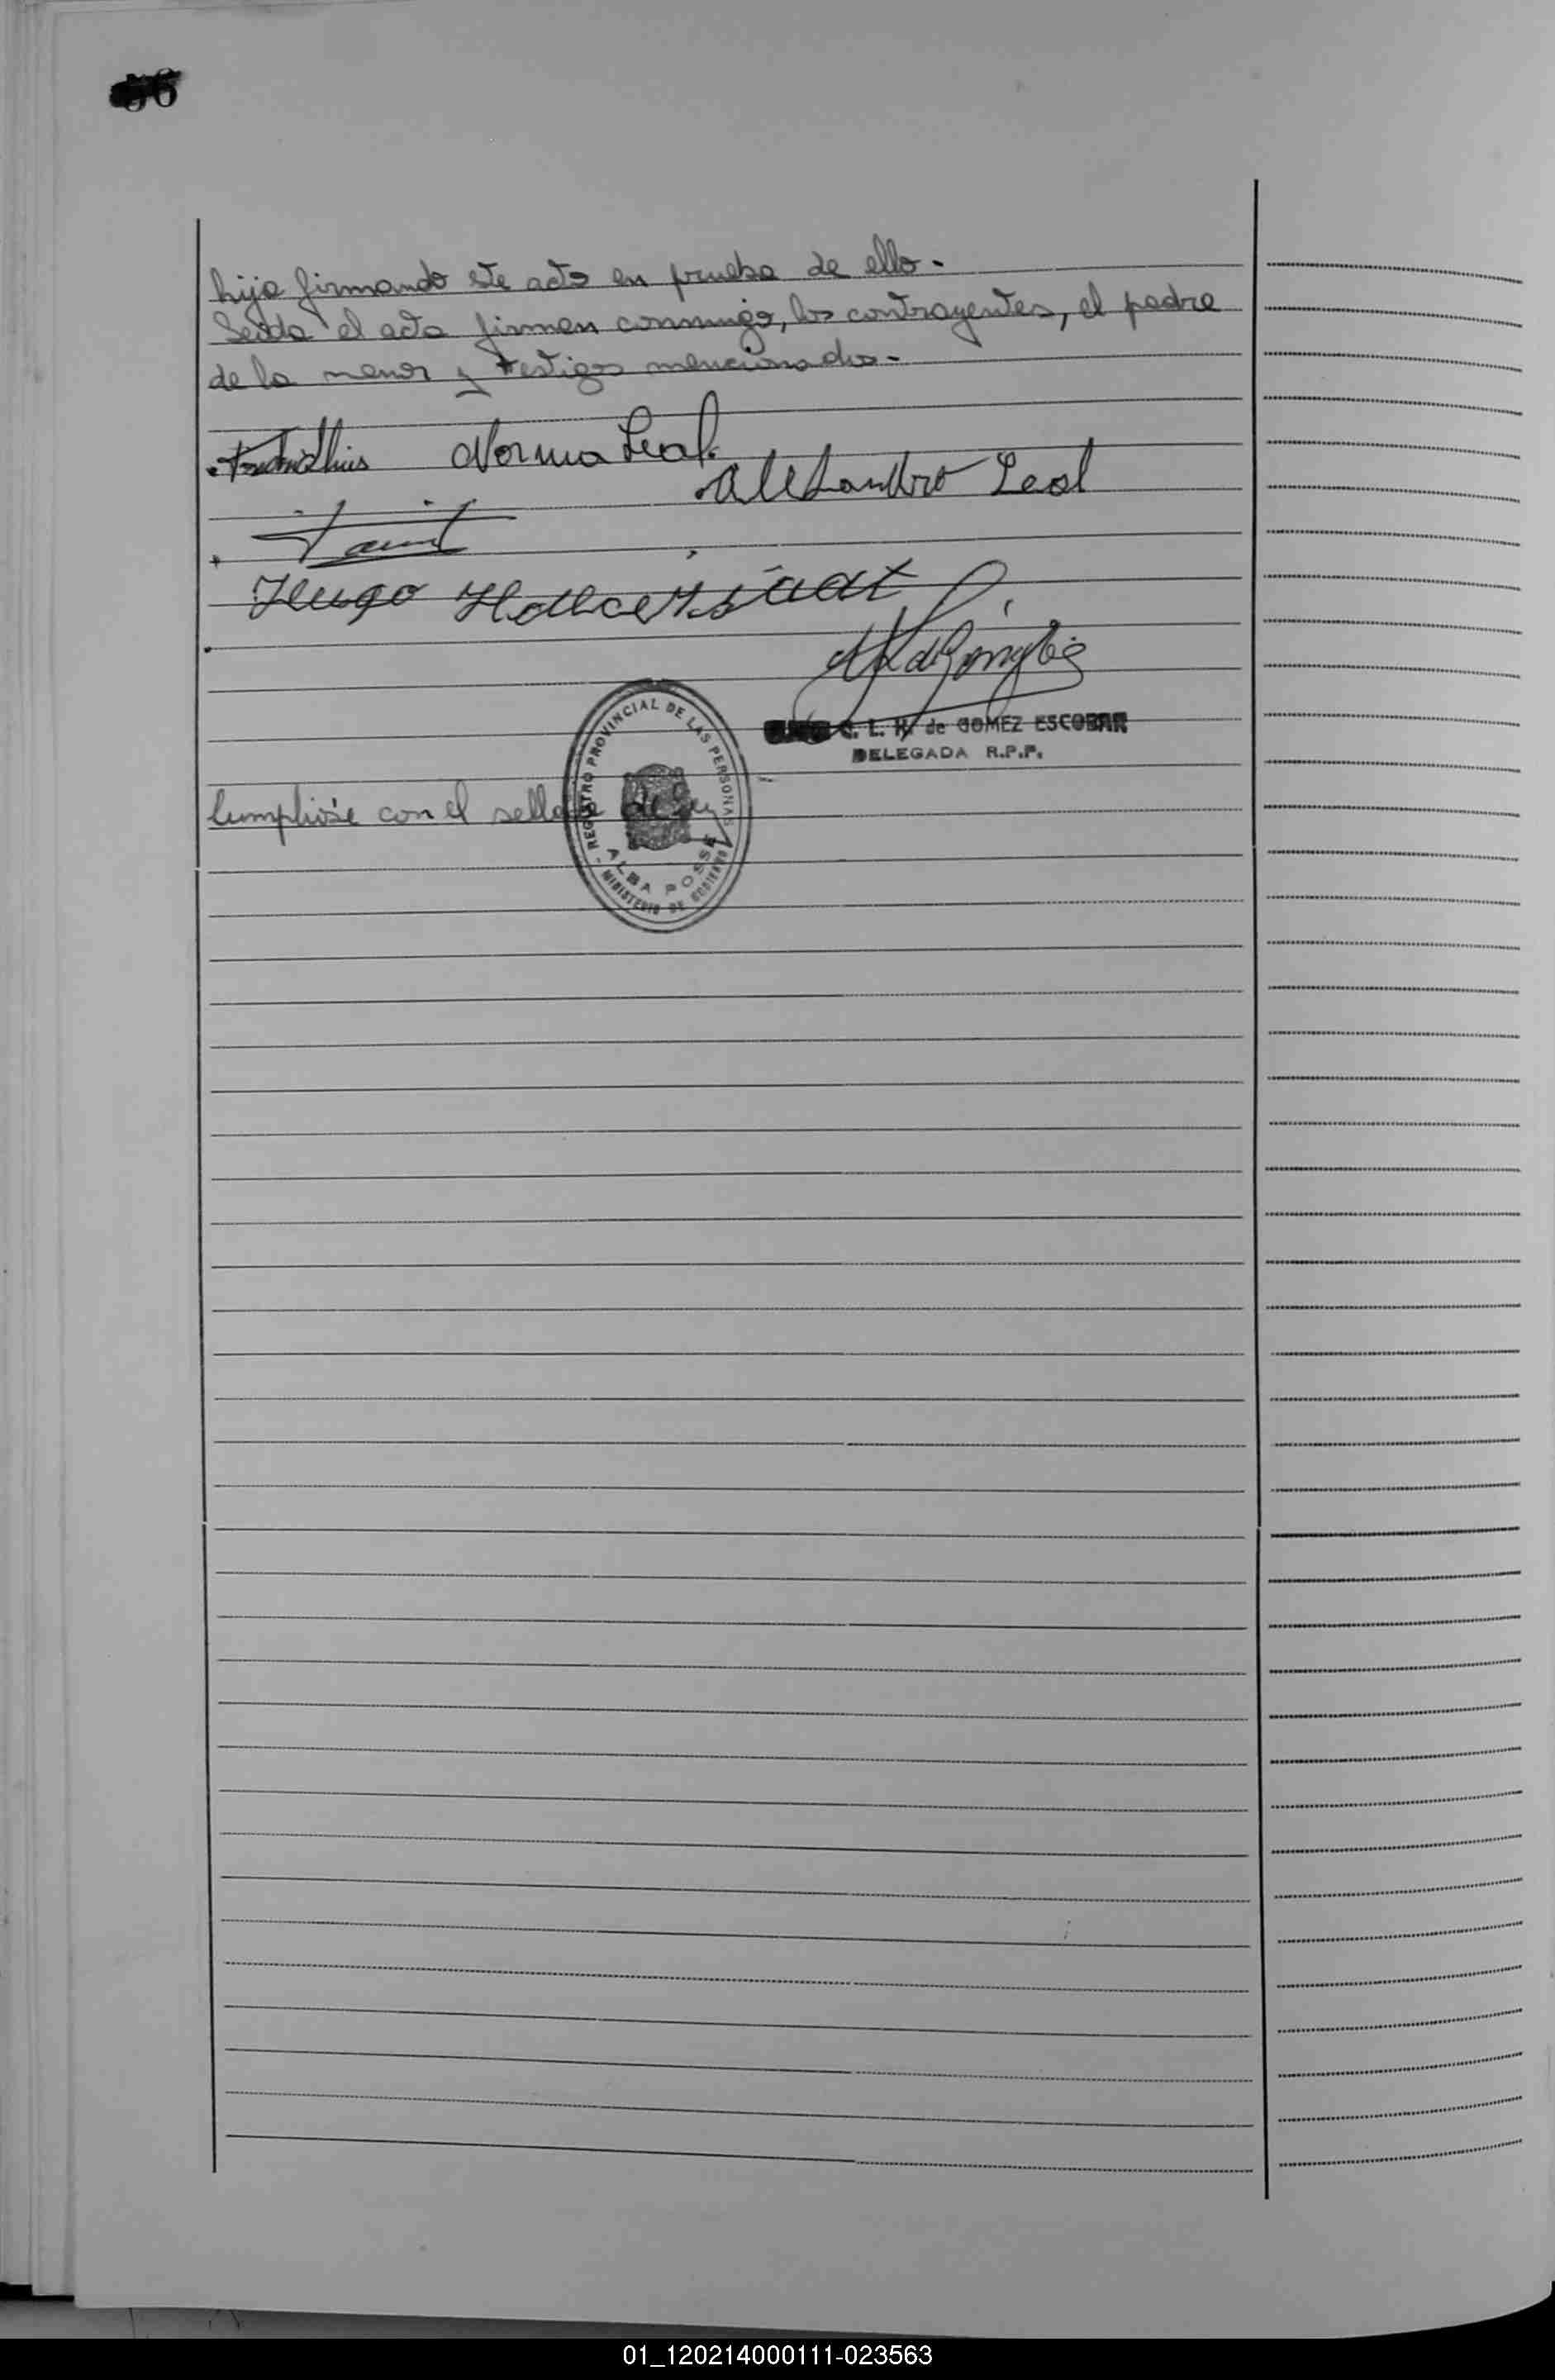 56
hija firmando este acto en prueba de ello.-
Leída el acta firman conmigo, los contrayentes, el padre
de la menor y testigos mencionados.-
Norma Leal.
Alesandro Leal
Hugo Halberstadt
C. L. H. de GOMEZ ESCOBAR
DELEGADA R.P.P.
REGISTRO PROVINCIAL DE LAS PERSONAS
ALBA POSSE
MINISTERIO DE GOBIERNO
Cumplióse con el sellado de ley
01_120214000111-023563